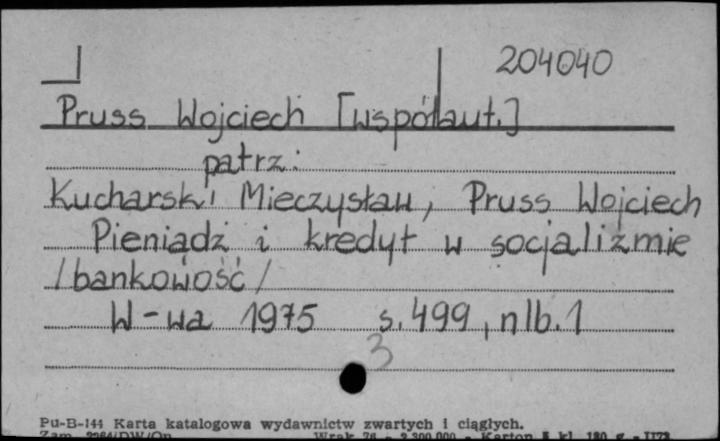 204040
Pruss Wojciech [współaut.]
patrz:
Kucharski Mieczysław, Pruss Wojciech
Pieniądz i kredyt w socjaliźmie
/bankowość/
W-wa 1975 s. 499, nlb. 1
3
Pu-B-144 Karta katalogowa wydawnictw zwartych i ciągłych.
Zam. Wrak. 76 - 2.300.000 - Karton kl. 180 g -